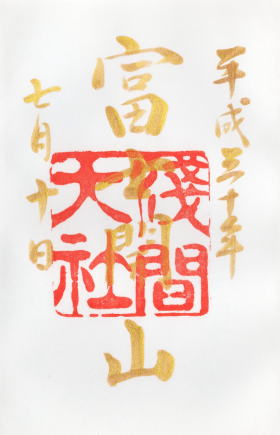 平成三十年
富士開山
淺間
大社
七月十日